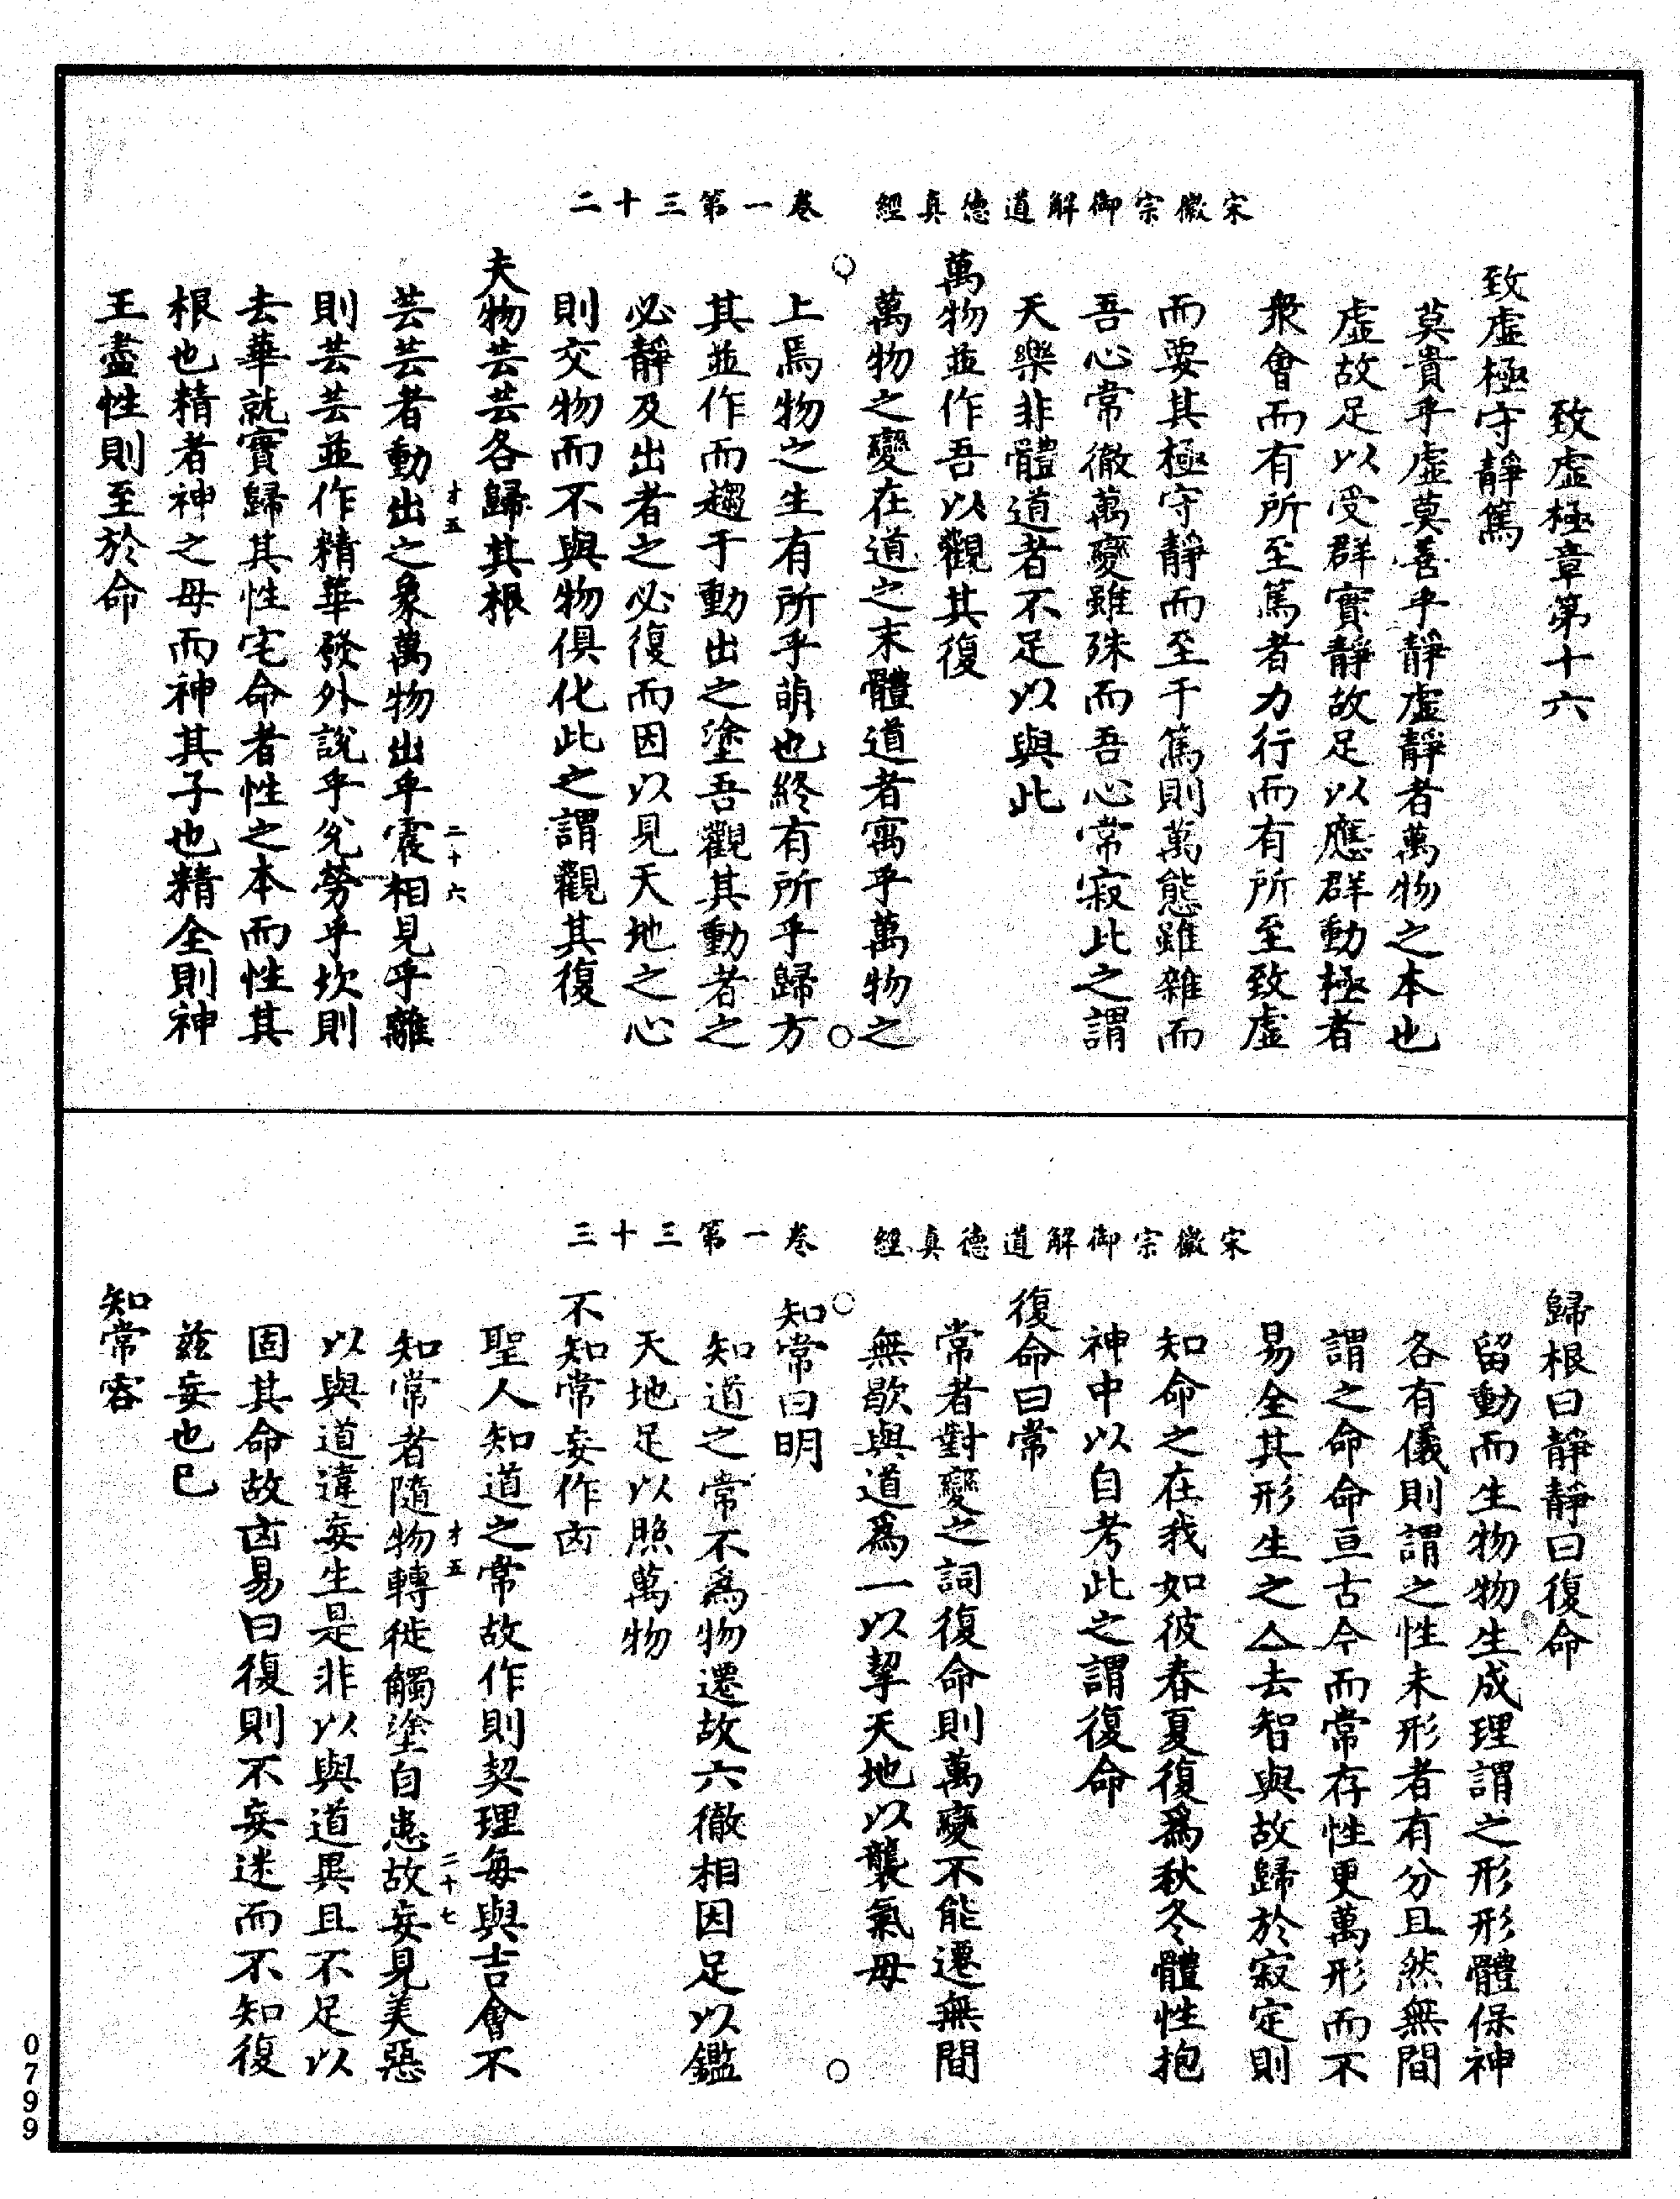 宋徽宗御解道德真經　卷一第三十二
致虛極章第十六
致虛極守靜篤
莫貴乎虛莫善乎靜虛靜者萬物之本也
虛故足以受群實靜故足以應群動極者
衆會而有所至篤者力行而有所至致虛
而要其極守靜而至于篤則萬態雖雜而
吾心常徹萬變雖殊而吾心常寂此之謂
天樂非體道者不足以與此
萬物並作吾以觀其復
萬物之變在道之末體道者寓乎萬物之
上焉物之生有所乎萌也終有所乎歸方
其並作而趨于動出之塗吾觀其動者之
必靜及出者之必復而因以見天地之心
則交物而不與物俱化此之謂觀其復
夫物芸芸各歸其根
才五　二十六
芸芸者動出之象萬物出乎震相見乎離
則芸芸並作精華發外說乎兊勞乎坎則
去華就實歸其性宅命者性之本而性其
根也精者神之母而神其子也精全則神
王盡性則至於命
宋徽宗御解道德真經　卷一第三十三
歸根曰靜靜曰復命
留動而生物物生成理謂之形形體保神
各有儀則謂之性未形者有分且然無間
謂之命命亘古今而常存性更萬形而不
易全其形生之人去智與故歸於寂定則
知命之在我如彼春夏復爲秋冬體性抱
神中以自考此之謂復命
復命曰常
常者對變之詞復命則萬變不能遷無間
無歇與道爲一以挈天地以襲氣母
知常曰明
知道之常不爲物遷故六徹相因足以鑑
天地足以照萬物
不知常妄作凶
聖人知道之常故作則契理每與吉會不
才五　二十七
知常者隨物轉徙觸塗自患故妄見美惡
以與道違妄生是非以與道異且不足以
固其命故凶易曰復則不妄迷而不知復
茲妄也已
知常容
0799